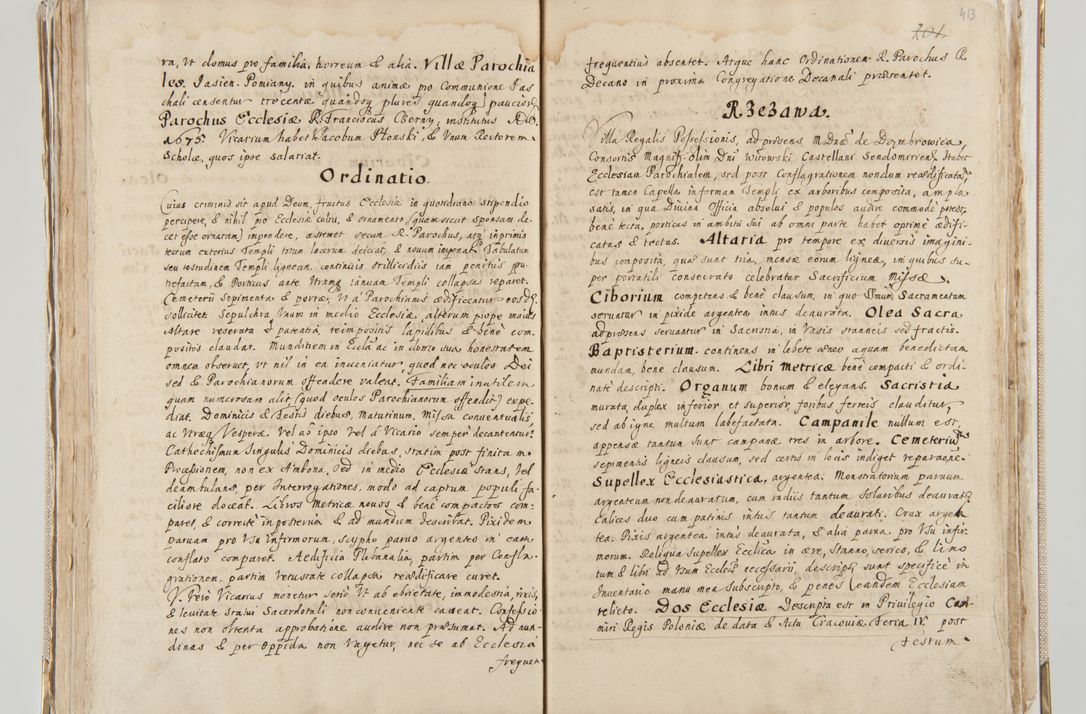 ra, Ut domus pro familia, horreum & alia. Villæ Parochia
les. Jasien. Pomiany. in quibus animæ pro Communione Pas
chali censentur trecentæ quandoq plures quandoq pauciores
Parochus Ecclesiæ R. Franciscus Czerny, institutus A.D.
1675. Vicarium habet Jacobum Płonski, & Unum Rectorem
Scholæ, quos ipse salariat.
Ordinatio.
Cuius criminis sit apud Deum, fructus Ecclesiæ in quotidiano stipendio
percipere, & nihil pro Ecclesiæ cultu, & ornamento (quam sicut sponsam de-
cet esse ornatam) impendere, æstimet secum R. Parochus, atq inprimis
tectum exterius Templi totum lacerum deiciat, & novum imponat. Tabulatum
seu testudinem Templi ligneam, continuis stillicidiis iam penitus pu-
trefactam, & Porticus ante Utramq ianuam Templi collapsas reparet.
Cemeterii sepimenta & portæ, Ut à Parochianis ædificentur eosdem
sollicitet. Sepulchra Unum in medio Ecclesiæ, alterum prope maius
Altare reserata & patentia, reimpositis lapidibus & bene com-
positis claudat. Munditiem in Eccla ac in domo sua honestatem
omnem observet, ut nil in ea inveniatur, quod nec oculos Dei
sed & Parochianorum offendere valeat. Familiam inutilem
quam numerosam alit (quod oculos Parochianorum offendit) expe-
diat. Dominicis & Festis diebus, Matutinum, Missa conventualis,
ac Utræq Vesperæ. Vel ab ipso vel à Vicario semper decantentur.
Cathechismum singulis Dominicis diebus, statim post finitam
Processionem, non ex Ambona, sed in medio Ecclesiæ stans, Vel
deambulans, per Interrogationes, modo ad captum populi fa-
ciliore doceat. Libros Metricæ novos & bene compactos com-
paret, & correctè inposterum & ad mundum describat. Pixidem
parvam pro Usu infirmorum, scypho parvo argenteo in eam
conflato comparet. Aedificia Plebanalia, partim per Confla-
grationem, partim Vetustate collapsa reædificare curet.
Vicarius monetur seriò Ut ab ebrietate, immodestia, rixis,
& levitate statui Sacerdotali non conveniente caveat. Confessio
nes non obtenta approbatione audire non præsumat. Ad nun-
dinas & per Oppida non Vagetur, nec se ab Ecclesia
frequen-

413
701.
frequentius absentet. Atque hanc Ordinationem R. Parochus R.
Decano in proxima Congregatione Decanali præsentet.
Rzezawa.
Villa Regalis Possessionis, ad præsens M. Dnæ de Dombrowica,
Consortis Magnif. olim Dni Witowski Castellani Sendomirien. Habet
Ecclesiam Parochialem, sed post Conflagrationem nondum reædificatam,
est tamen Capella in formam Templi ex arboribus composita, ampla
satis, in qua Divina Officia absolvi & populos audire commodè potest,
bene tecta, porticus in ambitu sui ab omni parte habet optimè ædifi-
catas & tectas. Altaria pro tempore ex diversis imagini-
bus composita, quæ sunt tria, mensæ eorum ligneæ, in quibus su-
per portatili consecrato celebratur Sacrificium Missæ.
Ciborium competens & benè clausum, in quo Smum Sacramentum
servatur in pixide argentea intus deaurata. Olea Sacra
ad præsens servantur in Sacristia, in Vasis stanneis sed fractis.
Baptisterium. continens in lebete æneo aquam benedictam
mundam, bene clausum. Libri Metricæ bene compacti & ordi-
natè descripti. Organum bonum & elegans. Sacristia
murata, duplex inferior et superior, foribus ferreis clauditur,
sed ab igne multum labefactata. Campanile nullum est,
appensæ tantum sunt campanæ tres in arbore. Cemeterium
sepimentis ligneis clausum, sed certis in locis indiget reparatione.
Supellex Ecclesiastica, argentea. Monstratorium parvum
argenteum non deauratum, cum radiis tantum solaribus deauratis
Calices duo cum patinis intus tantum deaurati. Crux argen
tea. Pixis argentea intus deaurata, & alia parva pro Usu infir-
morum. Reliqua supellex Ecclica in ære, stanno, serico, & lino
tum & libri ad Usum Ecclesiæ necessarii, descripti sunt specificè in
Inventario manu mea subscripto, & penes eandem Ecclesiam
relicto. Dos Ecclesiæ Descripta est in Privilegio Casi
miri Regis Poloniæ de data & Actu Cracoviæ Feria IV. post
Festum